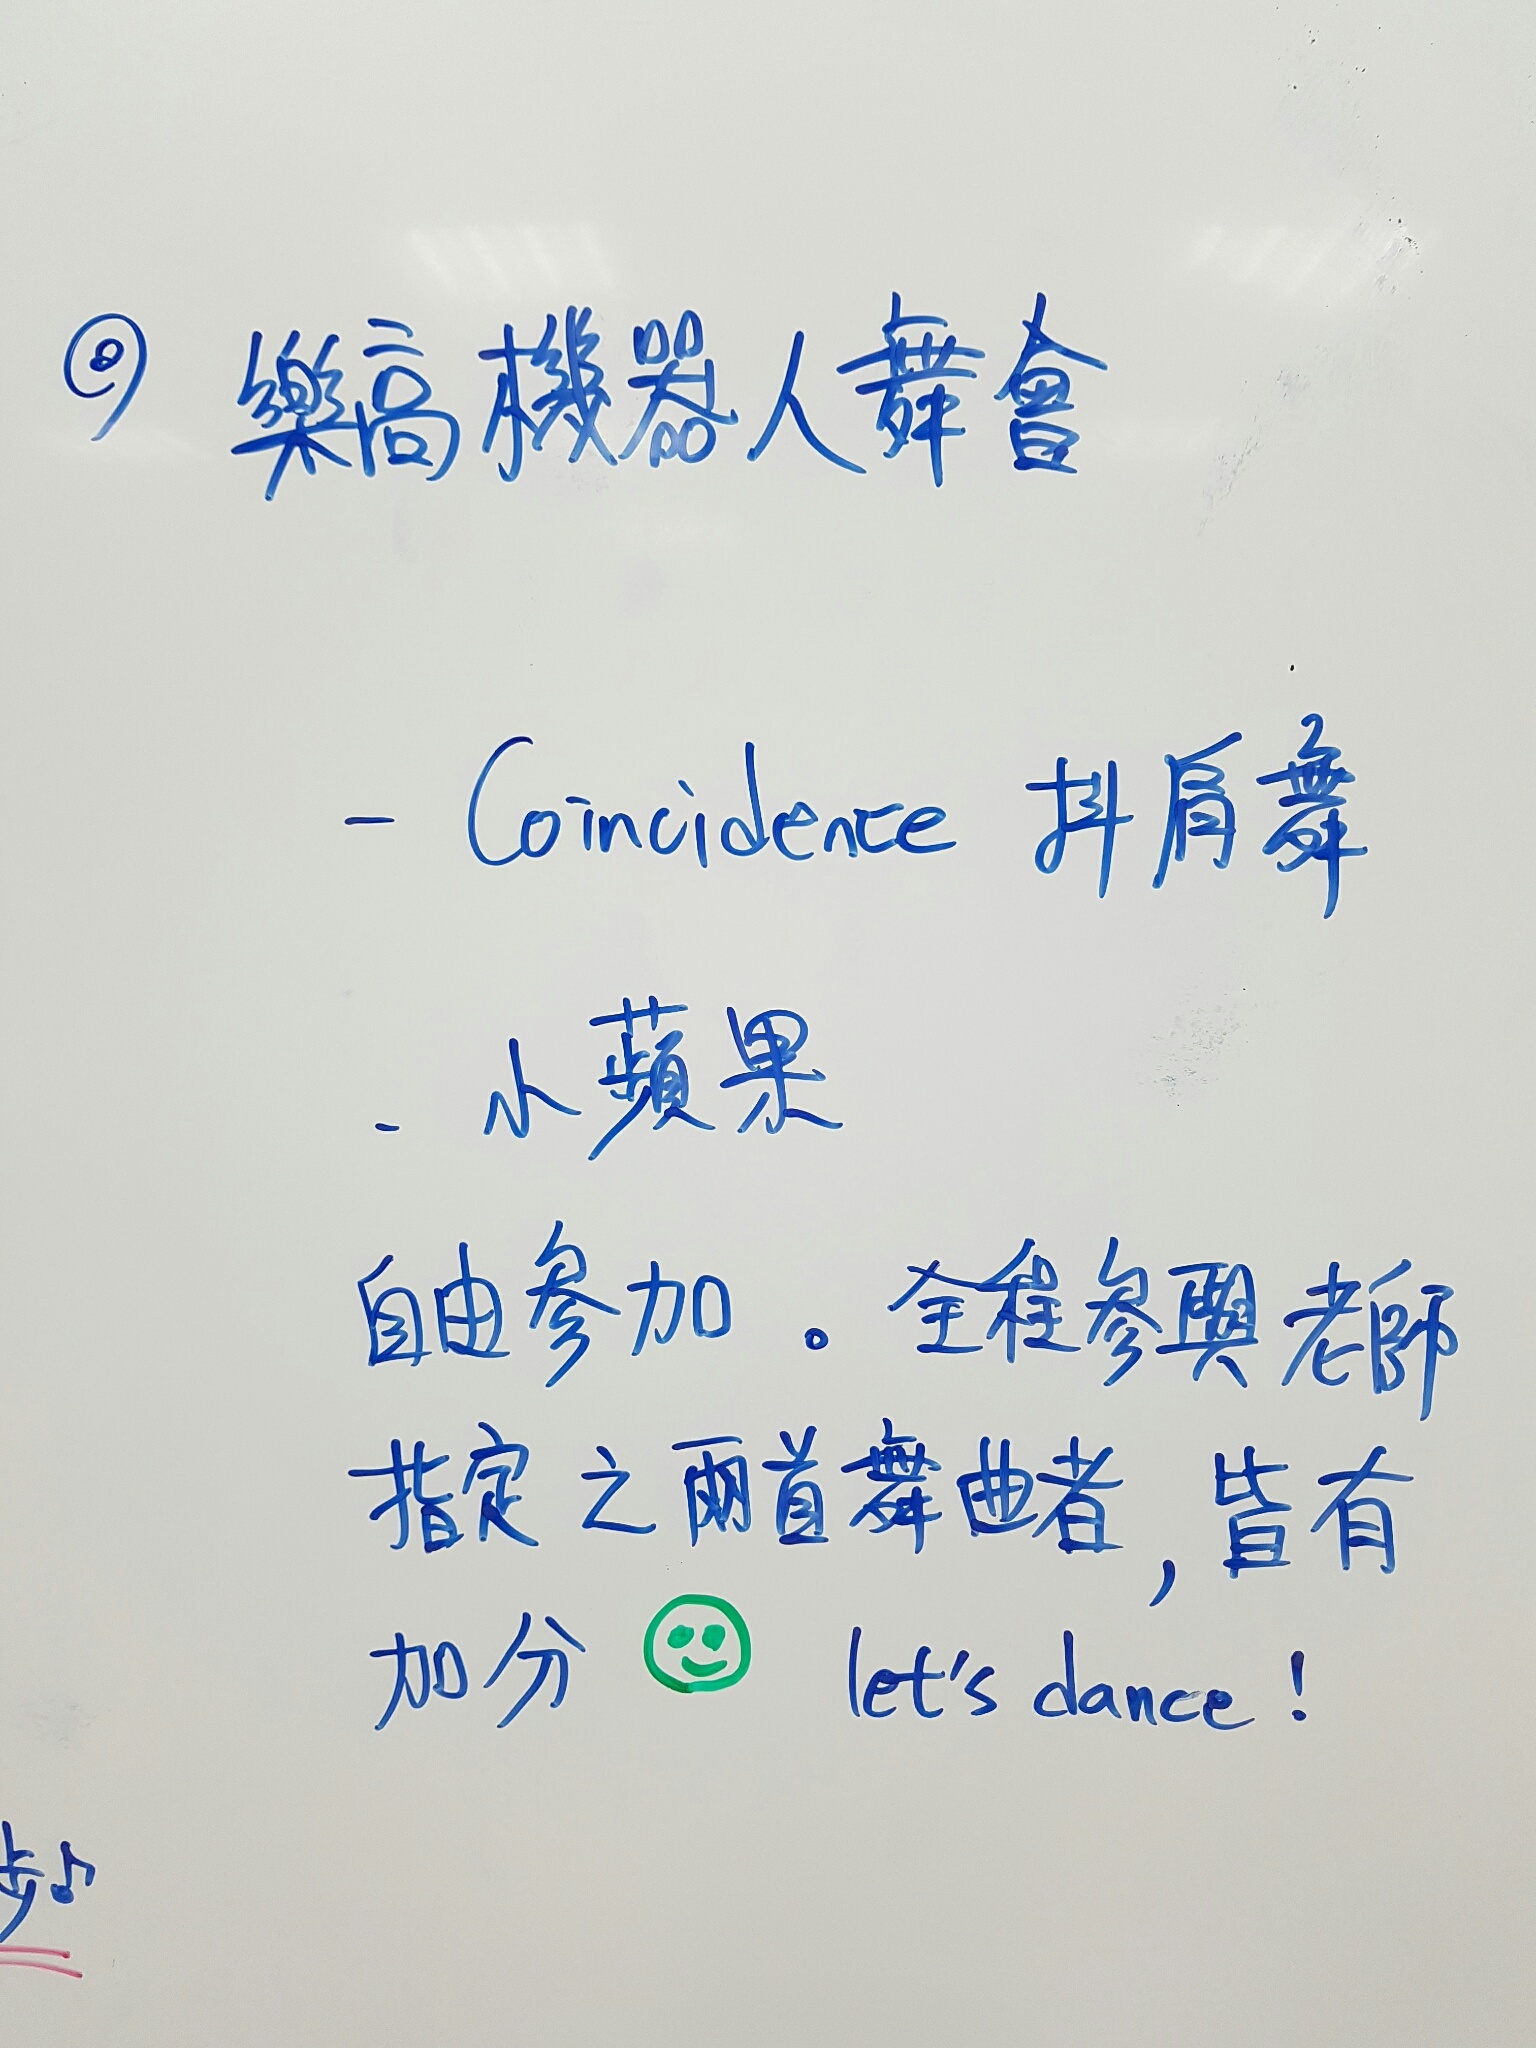 樂高機器人舞會
- Coincidence 抖肩舞
- 小蘋果
自由參加。全程參與老師
指定之兩首舞曲者,皆有
加分 let's dance!
步♪